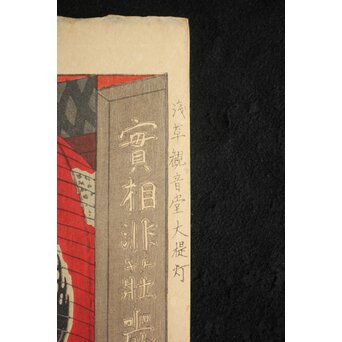 淺草觀音堂大提灯
實相非莊嚴